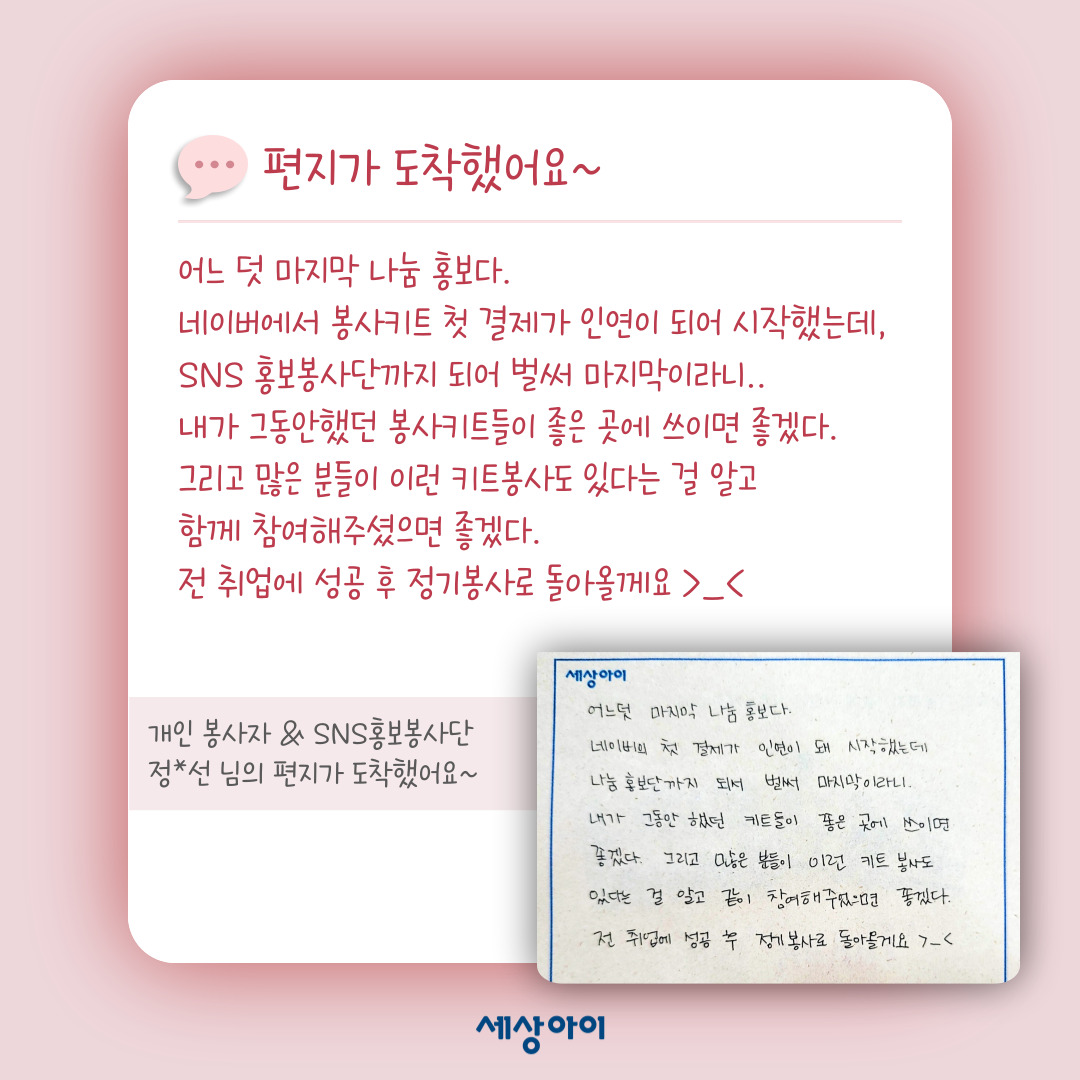 편지가 도착했어요~
어느 덧 마지막 나눔 홍보다.
네이버에서 봉사키트 첫 결제가 인연이 되어 시작했는데,
SNS 홍보봉사단까지 되어 벌써 마지막이라니..
내가 그동안했던 봉사키트들이 좋은 곳에 쓰이면 좋겠다.
그리고 많은 분들이 이런 키트봉사도 있다는 걸 알고
함께 참여해주셨으면 좋겠다.
전 취업에 성공 후 정기봉사로 돌아올께요 >_<
개인 봉사자 & SNS홍보봉사단
정*선 님의 편지가 도착했어요~
세상아이
어느덧 마지막 나눔 홍보다.
네이버의 첫 결제가 인연이 돼 시작했는데
나눔 홍보단까지 되서 벌써 마지막이라니.
내가 그동안 했던 키트들이 좋은 곳에 쓰이면
좋겠다. 그리고 많은 분들이 이런 키트 봉사도
있다는 걸 알고 같이 참여해주셨으면 좋겠다.
전 취업에 성공 후 정기봉사로 돌아올게요 >_<
세상아이